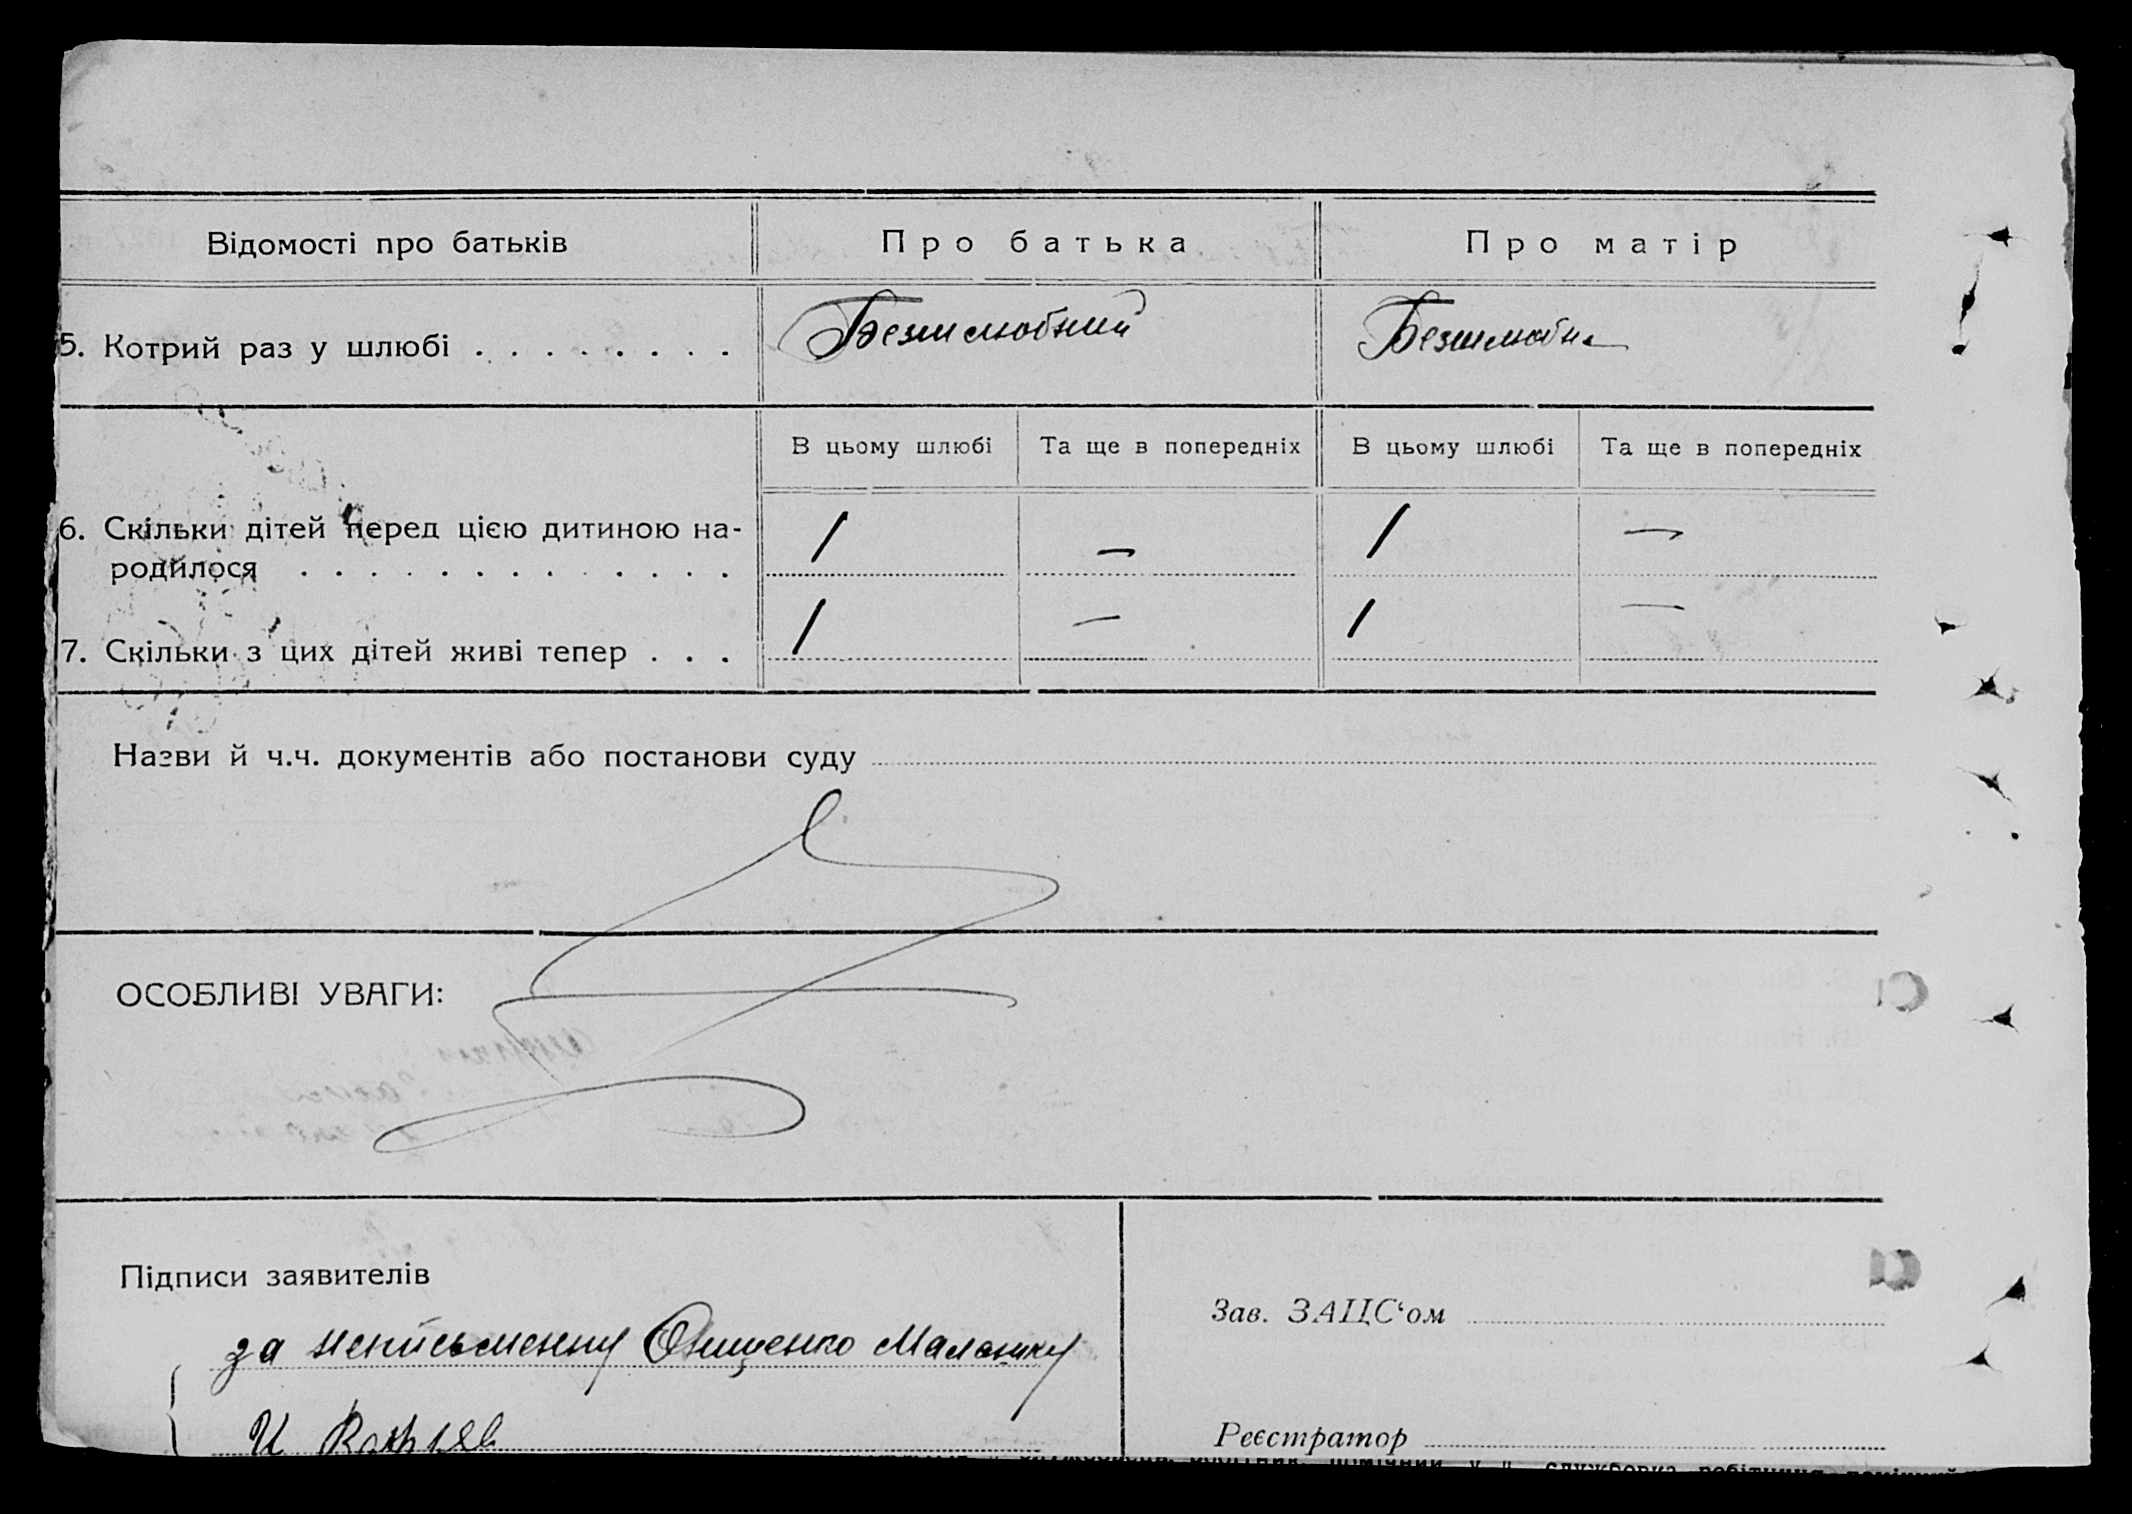 Відомості про батьків
Про батька
Про матір
5. Котрий раз у шлюбі . . . . . . . .
Безшлюбний
Безшлюбна
В цьому шлюбі
Та ще в попередніх
В цьому шлюбі
Та ще в попередніх
6. Скільки дітей перед цією дитиною на-
родилося . . . . . . . . . . . . .
/ — / —
7. Скільки з цих дітей живі тепер . . .
/ — / —
Назви й ч.ч. документів або постанови суду
ОСОБЛИВІ УВАГИ:
Підписи заявителів
за неписьменну Онищенко Маланку
Зав. ЗАЦС‘ом
Реєстратор